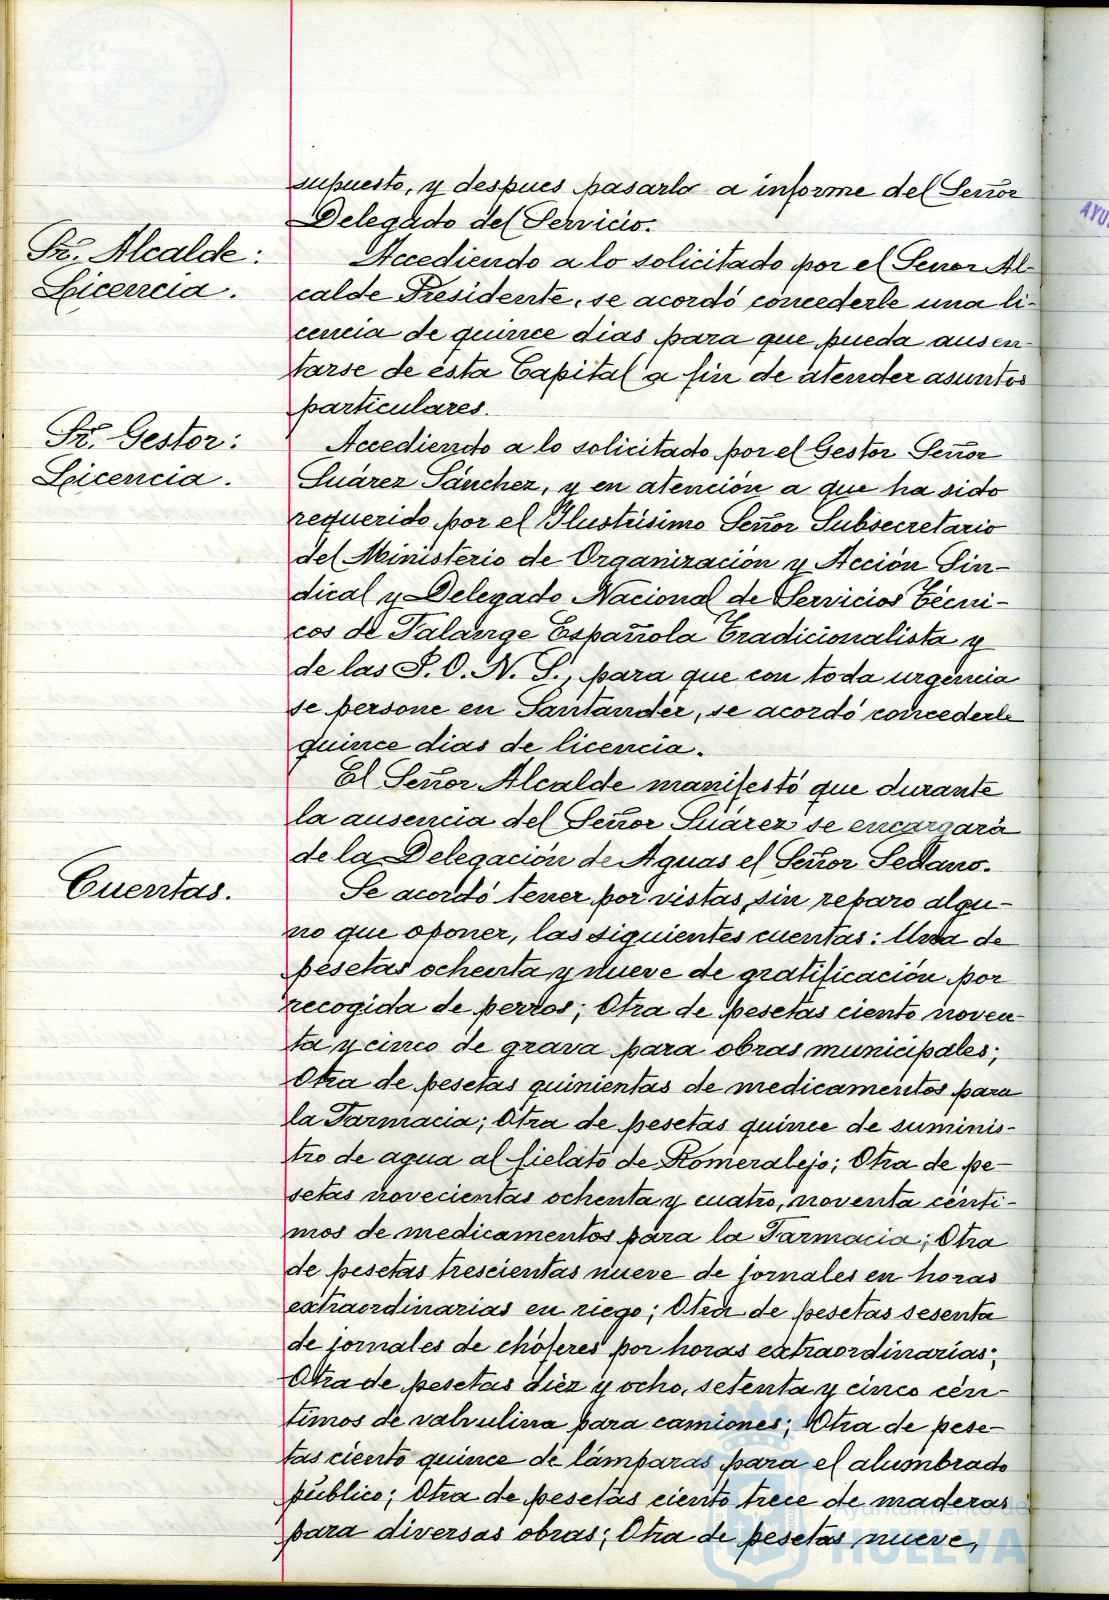 supuesto, y despues pasarlo a informe del Señor
Delegado del Servicio.
Sr. Alcalde:
Licencia.
Accediendo a lo solicitado por el Señor Al-
calde Presidente, se acordó concederle una li-
cencia de quince dias para que pueda ausen-
tarse de ésta Capital a fin de atender asuntos
particulares.
Sr. Gestor:
Licencia.
Accediendo a lo solicitado por el Gestor Señor
Suárez Sánchez, y en atención a que ha sido
requerido por el Ilustrísimo Señor Subsecretario
del Ministerio de Organización y Acción Sin-
dical y Delegado Nacional de Servicios Técni-
cos de Falange Española Tradicionalista y
de las J. O. N. S., para que con toda urgencia
se persone en Santander, se acordó concederle
quince dias de licencia.
El Señor Alcalde manifestó que durante
la ausencia del Señor Suárez se encargará
de la Delegación de Aguas el Señor Sedano.
Cuentas.
Se acordó tener por vistas, sin reparo algu-
no que oponer, las siguientes cuentas: Una de
pesetas ochenta y nueve de gratificación por
recogida de perros; Otra de pesetas ciento noven-
ta y cinco de grava para obras municipales;
Otra de pesetas quinientas de medicamentos para
la Farmacia; Otra de pesetas quince de suminis-
tro de agua al fielato de Romeralejo; Otra de pe-
setas novecientas ochenta y cuatro, noventa cénti-
mos de medicamentos para la Farmacia; Otra
de pesetas trescientas nueve de jornales en horas
extraordinarias en riego; Otra de pesetas sesenta
de jornales de chóferes por horas extraordinarias;
Otra de pesetas diez y ocho, setenta y cinco cén-
timos de valvulina para camiones; Otra de pese-
tas ciento quince de lámparas para el alumbrado
público; Otra de pesetas ciento trece de maderas
para diversas obras; Otra de pesetas nueve,
Ayuntamiento de
HUELVA
AYU